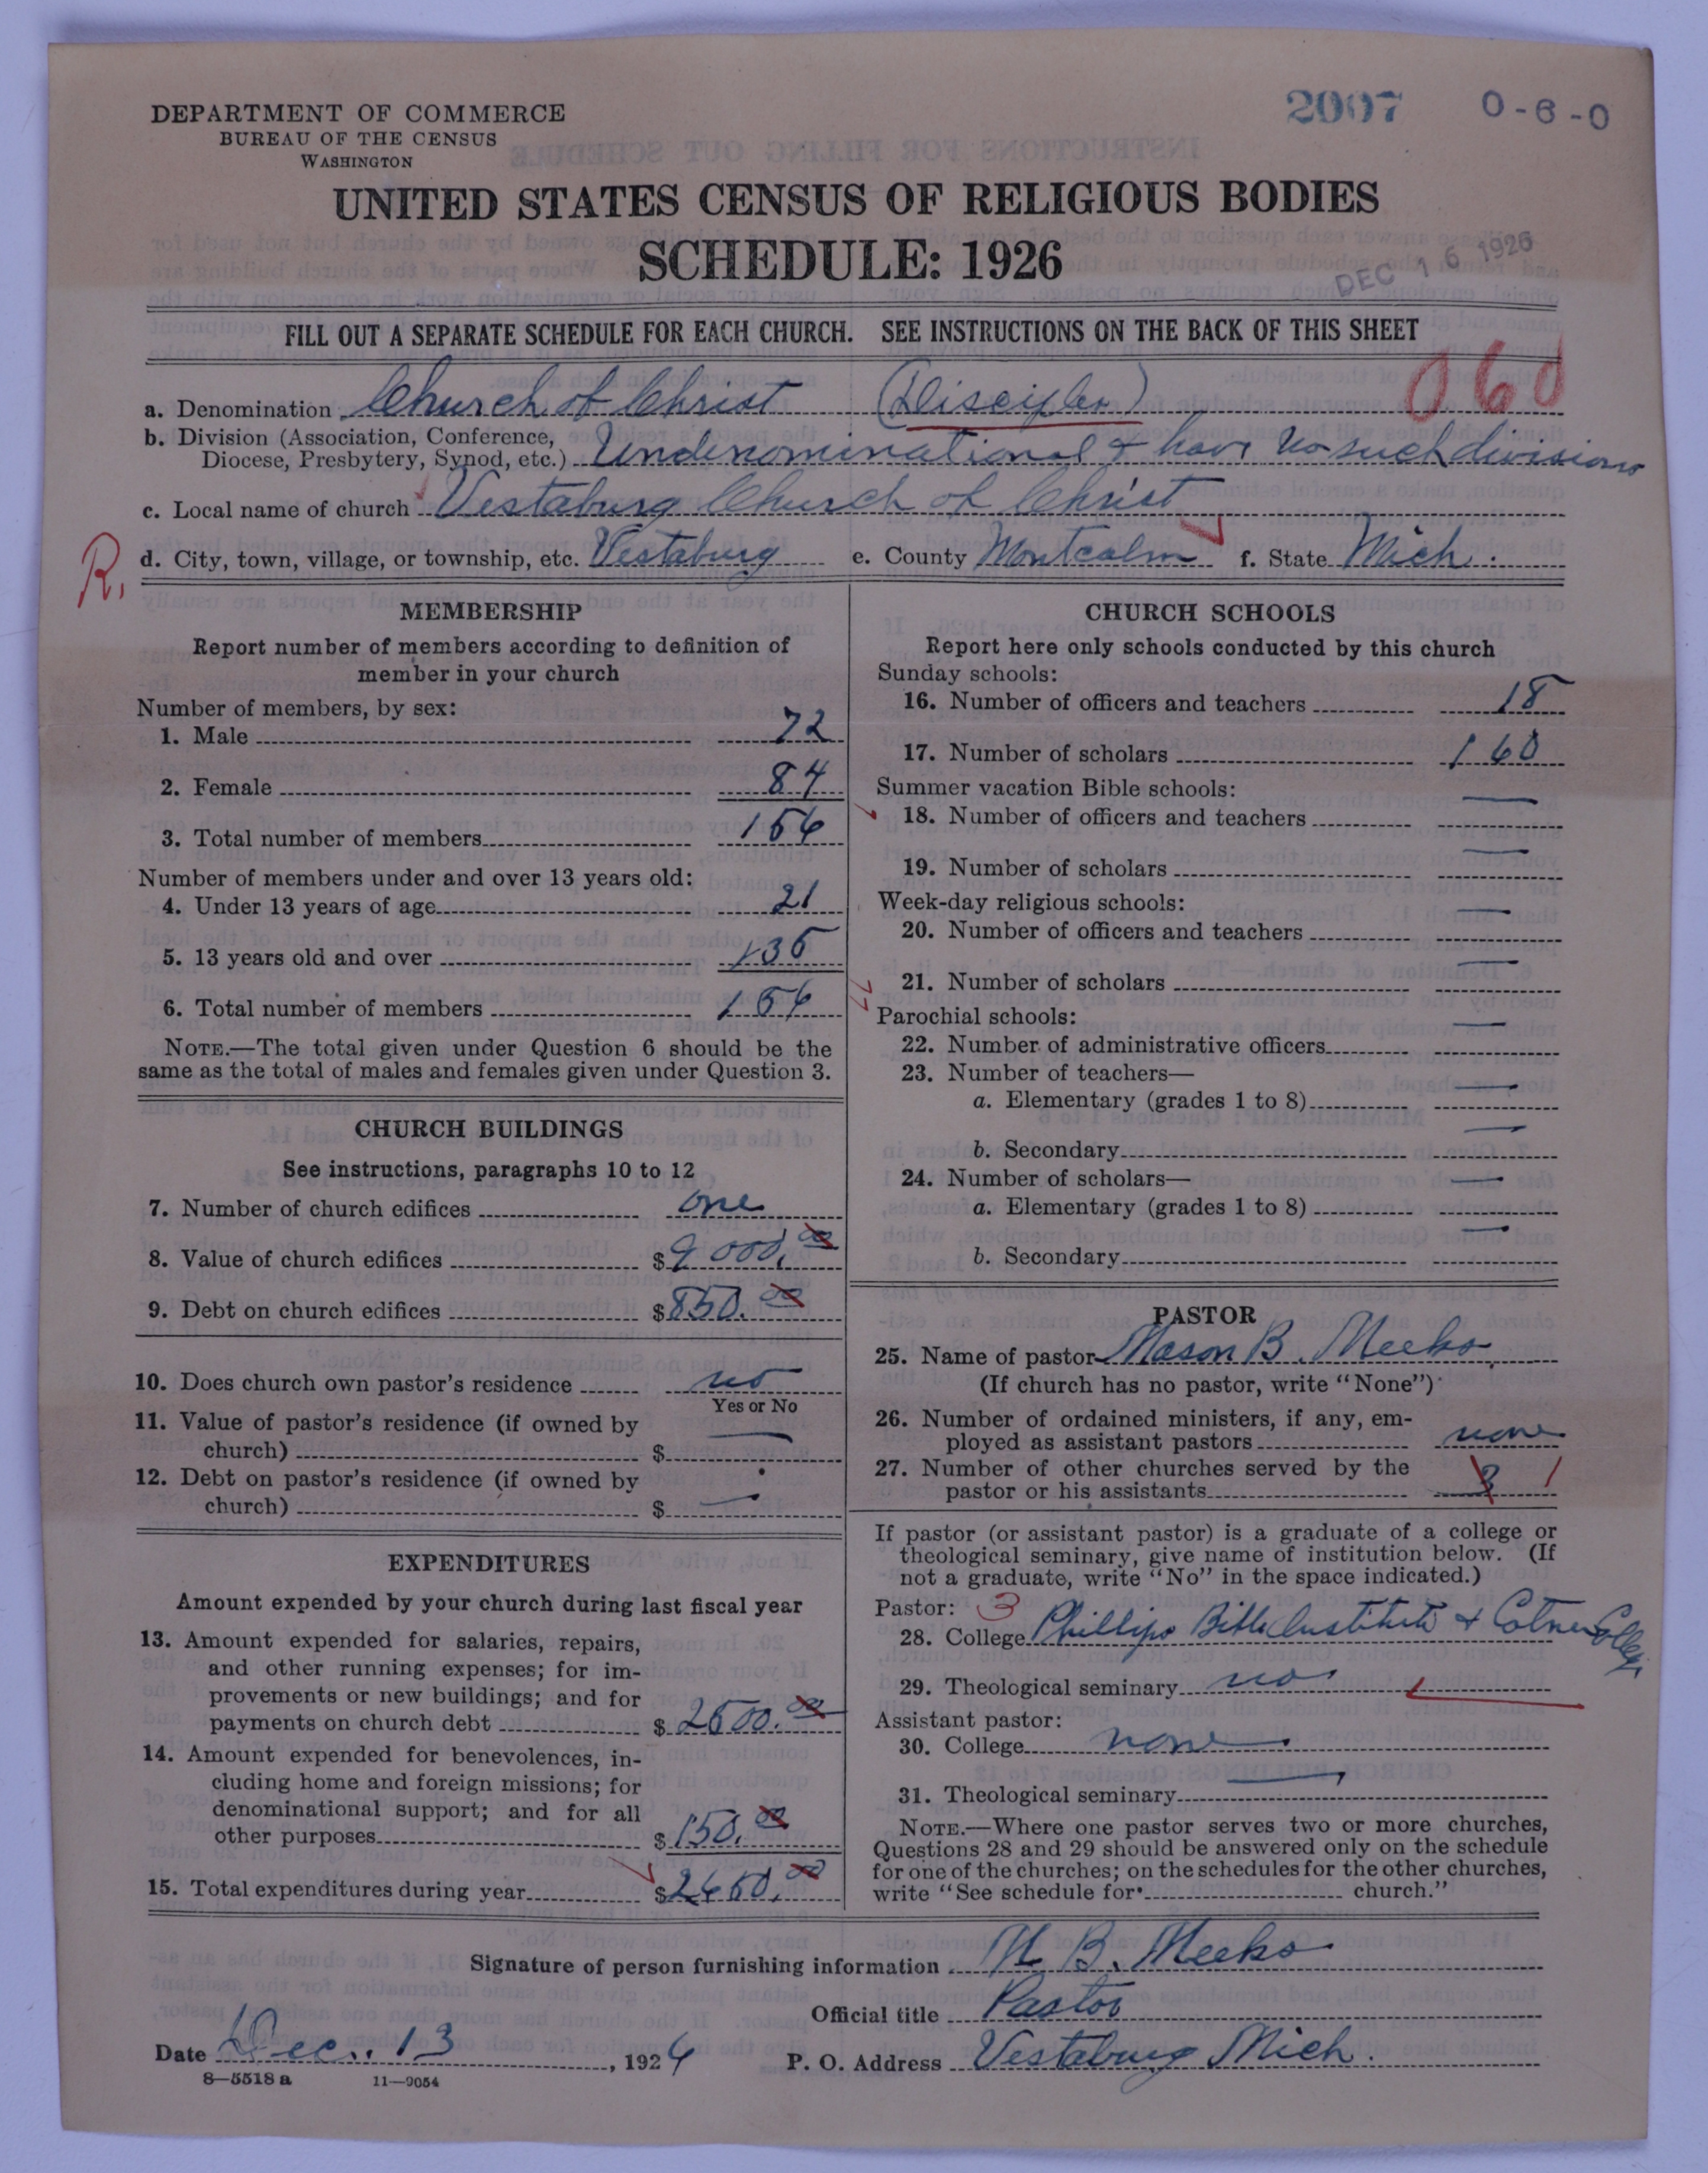 2007 0-6-0
DEPARTMENT OF COMMERCE
BUREAU OF THE CENSUS
WASHINGTON
UNITED STATES CENSUS OF RELIGIOUS BODIES
SCHEDULE: 1926
DEC 16 1926
FILL OUT A SEPARATE SCHEDULE FOR EACH CHURCH. SEE INSTRUCTIONS ON THE BACK OF THIS SHEET
060
a. Denomination Church of Christ (Disciples)
b. Division (Association, Conference,
Diocese, Presbytery, Synod, etc.) Undenominational & have no such divisions
c. Local name of church Vestaburg Church of Christ
R.
d. City, town, village, or township, etc. Vestaburg e. County Montcalm f. State Mich.
MEMBERSHIP
Report number of members according to definition of
member in your church
Number of members, by sex:
1. Male 72
2. Female 84
3. Total number of members 156
Number of members under and over 13 years old:
4. Under 13 years of age 21
5. 13 years old and over 135
6. Total number of members 156
NOTE.—The total given under Question 6 should be the
same as the total of males and females given under Question 3.
CHURCH BUILDINGS
See instructions, paragraphs 10 to 12
7. Number of church edifices one
8. Value of church edifices $9000.00
9. Debt on church edifices $850.00
10. Does church own pastor's residence no
Yes or No
11. Value of pastor's residence (if owned by
church) $ —
12. Debt on pastor's residence (if owned by
church) $ —
EXPENDITURES
Amount expended by your church during last fiscal year
13. Amount expended for salaries, repairs,
and other running expenses; for im-
provements or new buildings; and for
payments on church debt $ 2500.00
14. Amount expended for benevolences, in-
cluding home and foreign missions; for
denominational support; and for all
other purposes $150.00
15. Total expenditures during year $2650.00
CHURCH SCHOOLS
Report here only schools conducted by this church
Sunday schools:
16. Number of officers and teachers 18
17. Number of scholars 160
Summer vacation Bible schools:
18. Number of officers and teachers —
19. Number of scholars —
Week-day religious schools:
20. Number of officers and teachers —
21. Number of scholars —
Parochial schools:
22. Number of administrative officers —
23. Number of teachers—
a. Elementary (grades 1 to 8) —
b. Secondary —
24. Number of scholars—
a. Elementary (grades 1 to 8) —
b. Secondary —
PASTOR
25. Name of pastor Mason B. Meeks
(If church has no pastor, write "None")
26. Number of ordained ministers, if any, em-
ployed as assistant pastors none
27. Number of other churches served by the
pastor or his assistants 3 1
If pastor (or assistant pastor) is a graduate of a college or
theological seminary, give name of institution below. (If
not a graduate, write "No" in the space indicated.)
Pastor: 3
28. College Phillips Bible Institute & Cotner College
29. Theological seminary no
Assistant pastor:
30. College none
31. Theological seminary —
NOTE.—Where one pastor serves two or more churches,
Questions 28 and 29 should be answered only on the schedule
for one of the churches; on the schedules for the other churches,
write "See schedule for church."
Signature of person furnishing information M. B. Meeks
Official title Pastor
Date Dec. 13, 1926 P. O. Address Vestaburg Mich.
8—5518a 11—9054